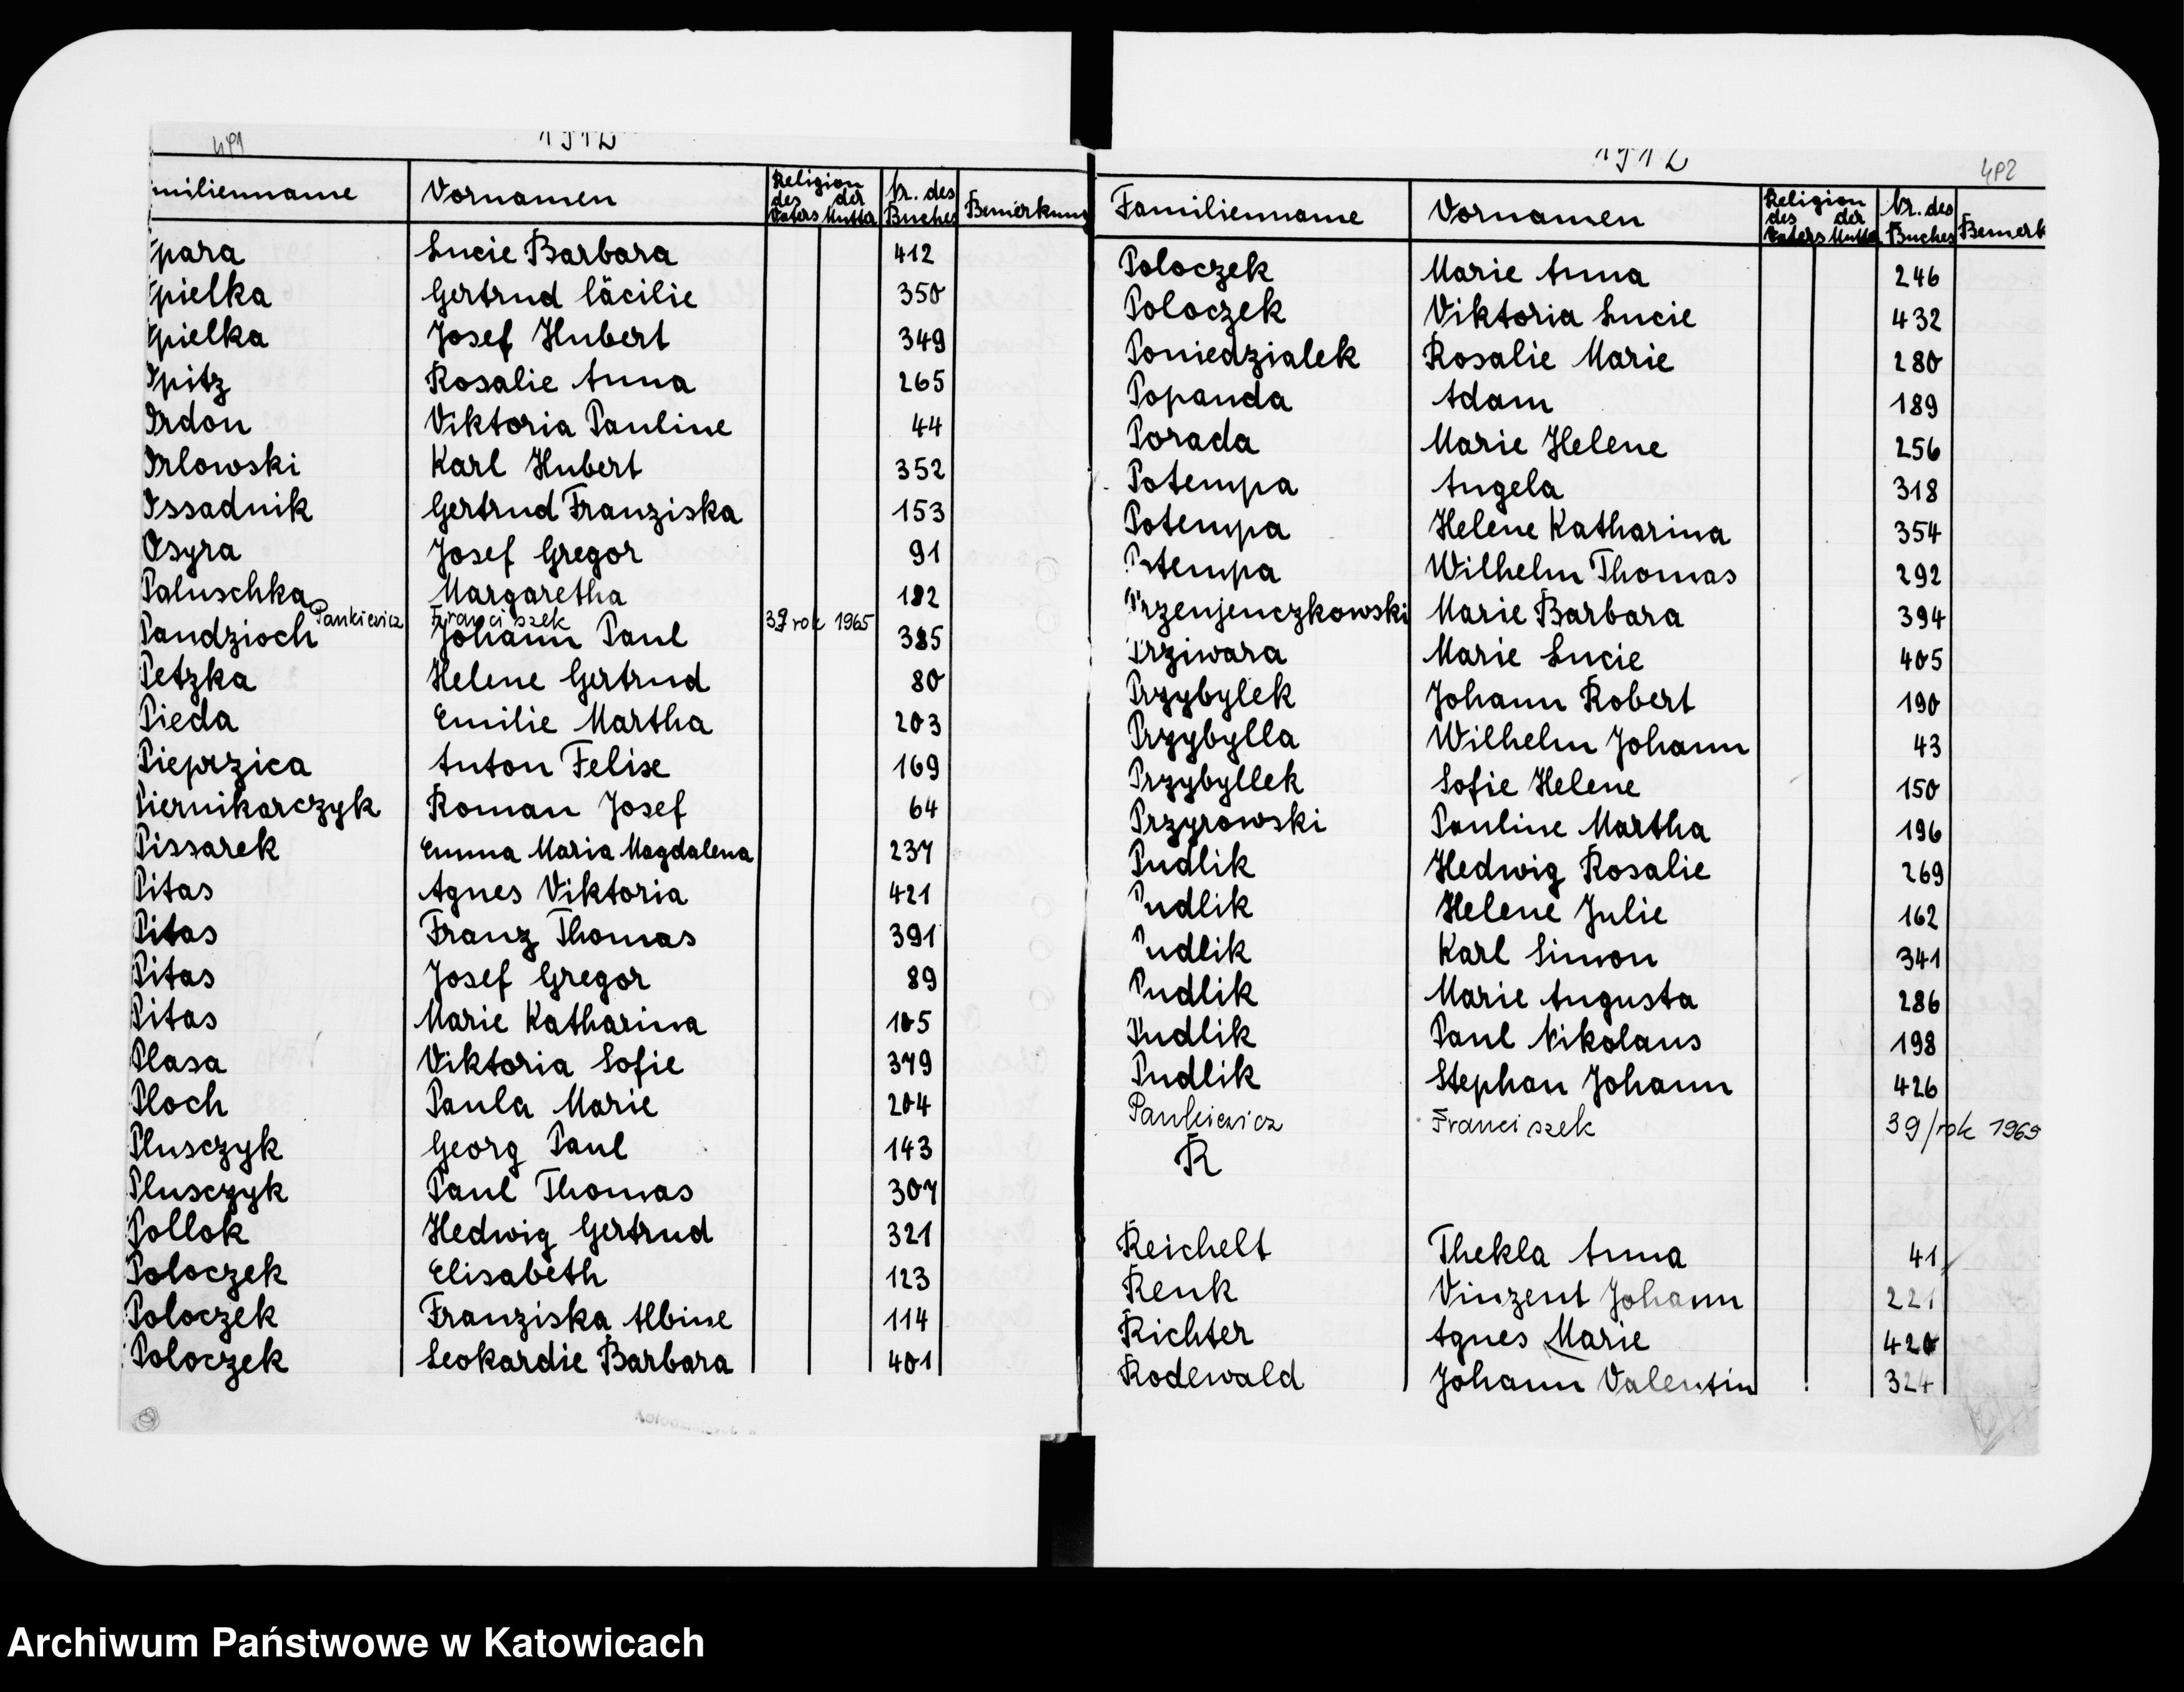 491
1912
milienname Vornamen Religion des Vaters der Mutter Nr. des Buches Bemerkung
para Lucie Barbara 412
pielka Gertrud Cäcilie 350
pielka Josef Hubert 349
Opitz Rosalie Anna 265
Ordon Viktoria Pauline 44
Orlowski Karl Hubert 352
Ossadnik Gertrud Franziska 153
Osyra Josef Gregor 91
Paluschka Margaretha 182
Pankiewicz Franciszek 39 rok 1965
Pandzioch Johann Paul 385
Petzka Helene Gertrud 80
Pieda Emilie Martha 203
Pieprzica Anton Felise 169
Piernikarczyk Roman Josef 64
Pissarek Emma Maria Magdalena 237
Pitas Agnes Viktoria 421
Pitas Franz Thomas 391
Pitas Josef Gregor 89
Pitas Marie Katharina 105
Plasa Viktoria Sofie 379
Ploch Paula Marie 204
Plusczyk Georg Paul 143
Plusczyk Paul Thomas 307
Pollok Hedwig Gertrud 321
Poloczek Elisabeth 123
Poloczek Franziska Albine 114
Poloczek Leokardie Barbara 401
1912
492
Familienname Vornamen Religion des Vaters der Mutter Nr. des Buches Bemerk
Poloczek Marie Anna 246
Poloczek Viktoria Lucie 432
Poniedzialek Rosalie Marie 280
Popanda Adam 189
Porada Marie Helene 256
Potempa Angela 318
Potempa Helene Katharina 354
Potempa Wilhelm Thomas 292
Przenjenczkowski Marie Barbara 394
Prziwara Marie Lucie 405
Przybylek Johann Robert 190
Przybylla Wilhelm Johann 43
Przybyllek Sofie Helene 150
Przyrowski Pauline Martha 196
Pudlik Hedwig Rosalie 269
Pudlik Helene Julie 162
Pudlik Karl Simon 341
Pudlik Marie Augusta 286
Pudlik Paul Nikolaus 198
Pudlik Stephan Johann 426
Pankiewicz Franciszek 39/rok 1965
R
Reichelt Thekla Anna 41
Renk Vinzent Johann 221
Richter Agnes Marie 420
Rodewald Johann Valentin 324
Archiwum Państwowe w Katowicach